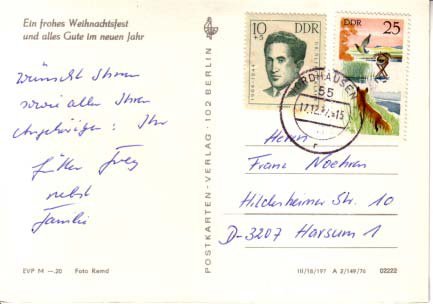 Ein frohes Weihnachtsfest
und alles Gute im neuen Jahr
wünscht Ihnen
sowie allen Ihren
Angehörigen: Ihr
nebst
Familie
EVP M –.20 Foto Remd
POSTKARTEN-VERLAG · 102 BERLIN
10
+5
DDR
1904-1944
DDR
25
NORDHAUSEN
55
17.12.
-15
Herrn
Franz Noehren
Hildesheimer Str. 10
D-3207 Harsum 1
III/18/197 A 2/149/76 02222